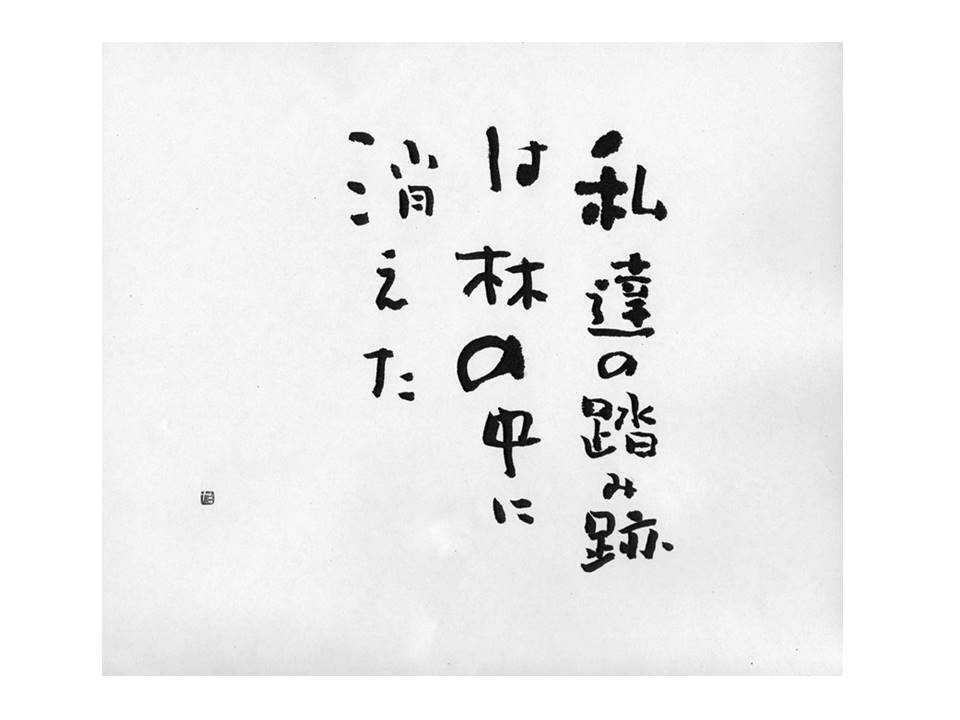 私達の踏み跡
は林の中に
消えた